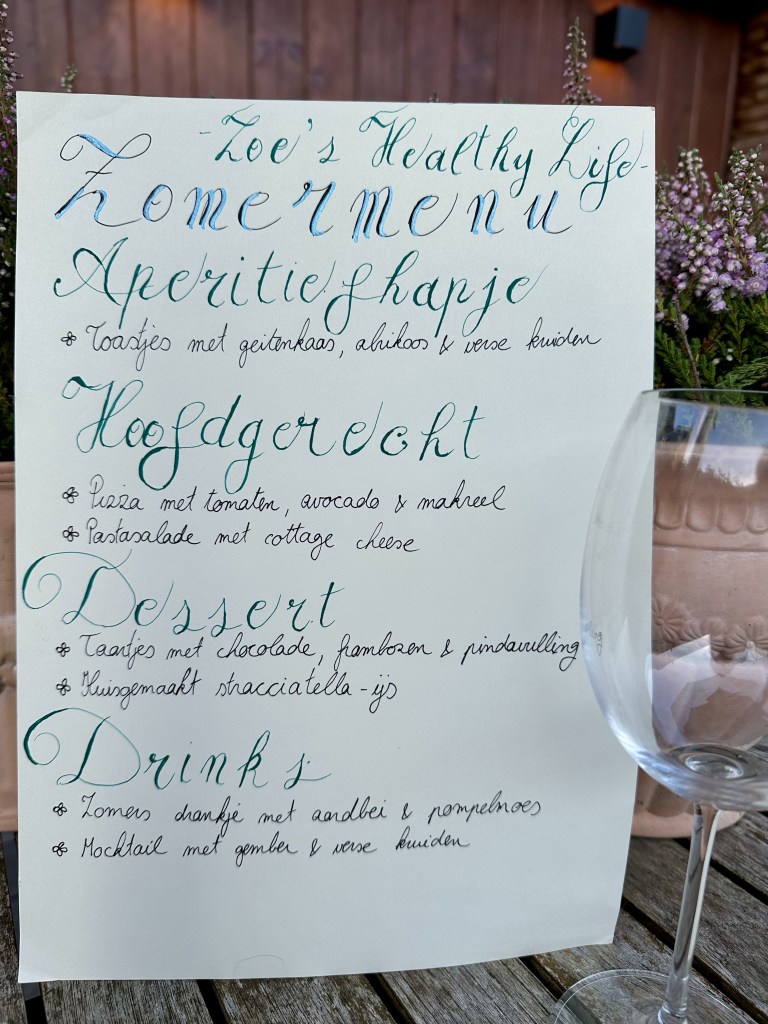 -Zoe's Healthy Life-
Zomermenu
Aperitiefhapje
Toastjes met geitenkaas, abrikoos & verse kruiden
Hoofdgerecht
Pizza met tomaten, avocado & makreel
Pastasalade met cottage cheese
Dessert
Taartjes met chocolade, frambozen & pindavulling
Huisgemaakt stracciatella-ijs
Drinks
Zomers drankje met aardbei & pompelmoes
Mocktail met gember & verse kruiden